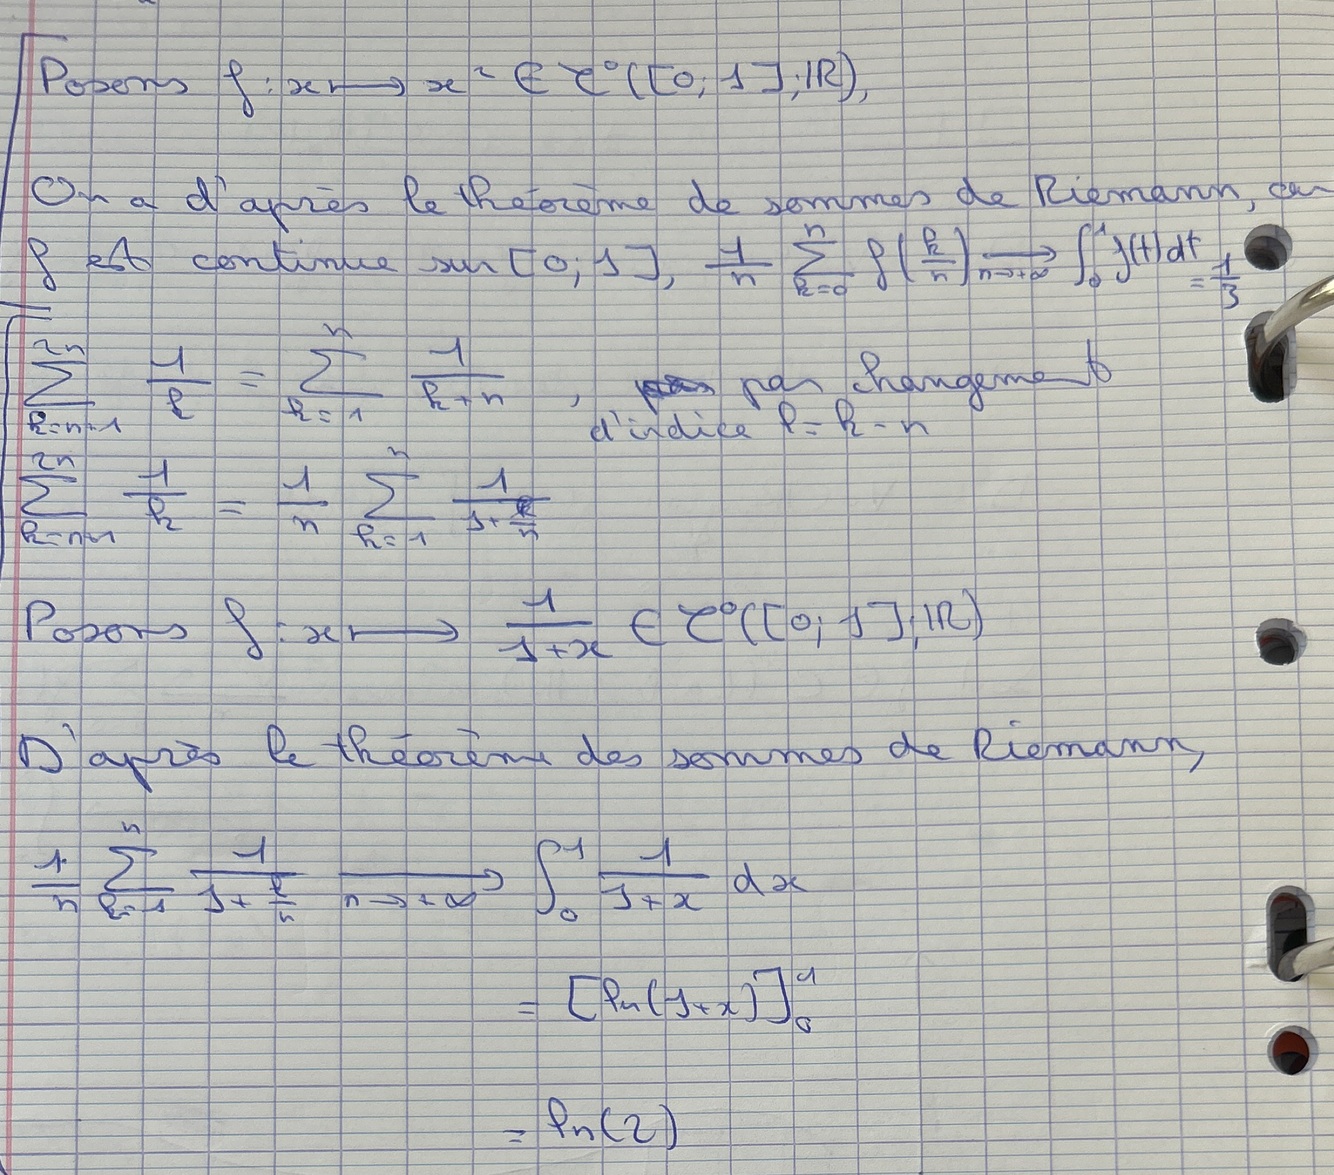 Posons f : x ⟼ x² ∈ 𝒞⁰([0; 1]; ℝ),
On a d'après le théorème de sommes de Riemann, car
f est continue sur [0; 1], 1/n ∑_{k=0}^{n} f(k/n) ⟶_{n→+∞} ∫_0^1 f(t) dt = 1/3
∑_{k=n+1}^{2n} 1/k = ∑_{k=1}^{n} 1/(k+n) , par changement
d'indice l = k - n
∑_{k=n+1}^{2n} 1/k = 1/n ∑_{k=1}^{n} 1/(1 + k/n)
Posons f : x ⟼ 1/(1+x) ∈ 𝒞⁰([0; 1]; ℝ)
D'après le théorème des sommes de Riemann,
1/n ∑_{k=1}^{n} 1/(1 + k/n) ⟶_{n→+∞} ∫_0^1 1/(1+x) dx
= [ln(1+x)]_0^1
= ln(2)